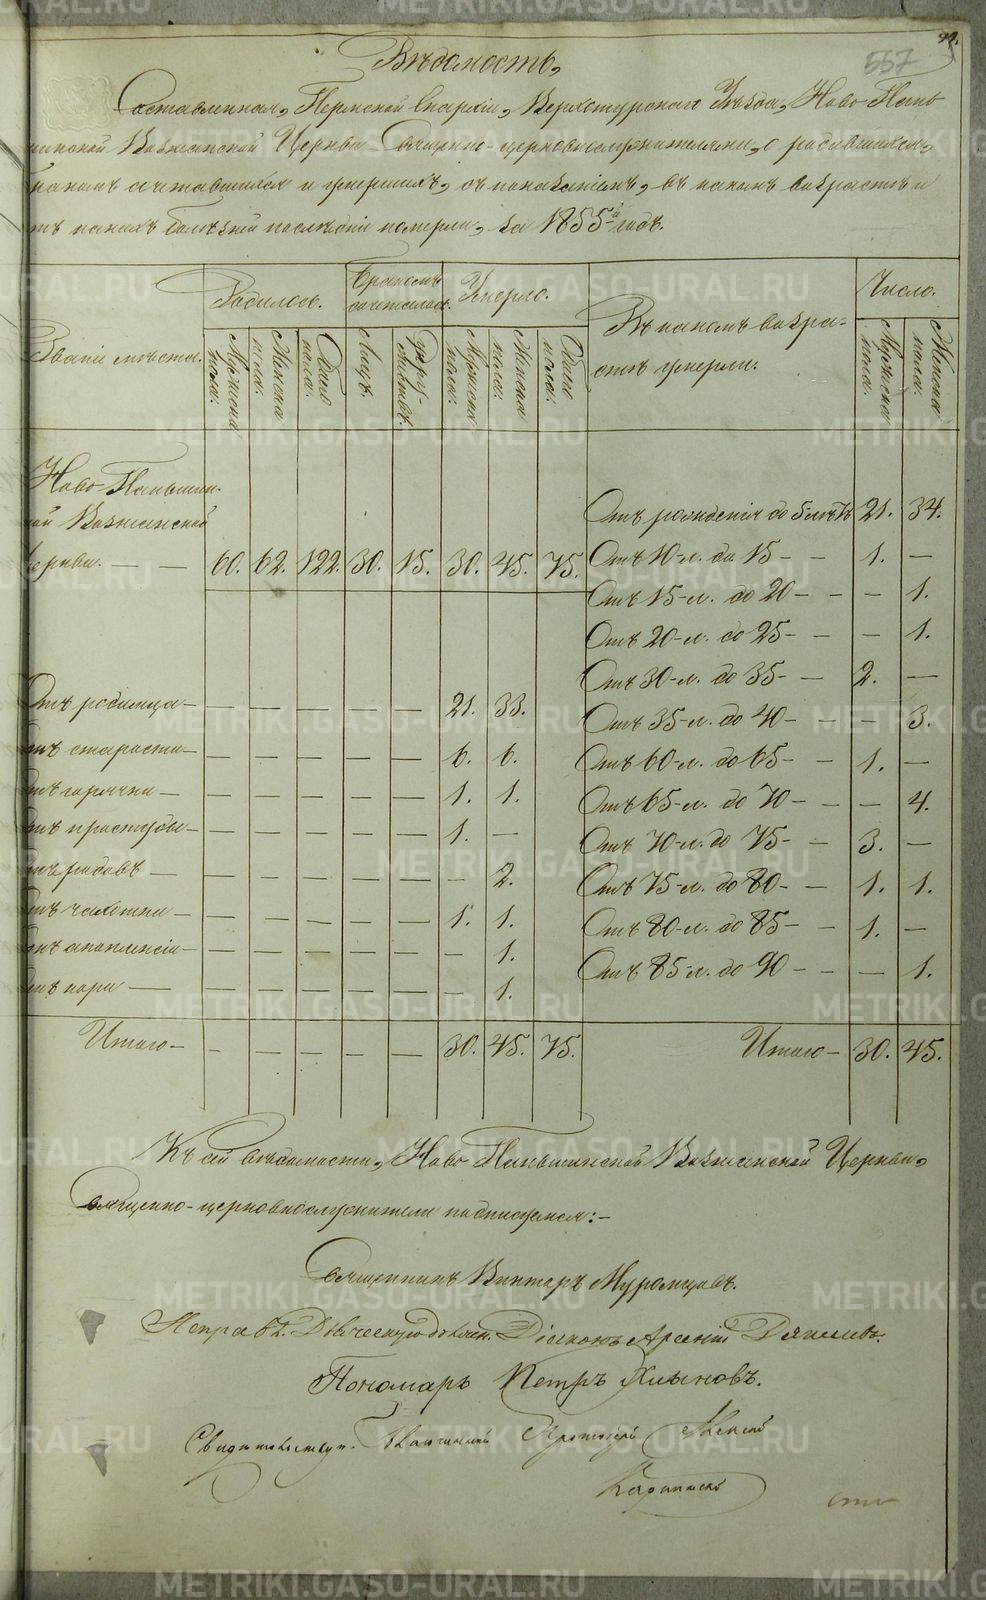 557
Вѣдомость,
Составленная, Пермской Епархіи, Верхотурскаго Уѣзда, Ново-Пань
шинской Вознесенской Церкви Священно-церковнослужителями, о родившихся,
бракомъ сочетавшихся и умершихъ, съ показаніемъ, въ какомъ возрастѣ и
отъ какихъ болѣзней послѣдніе померли, за 1855й годъ.
Званіе мѣста. Родилось. Бракомъ сочеталось. Умерло. Въ какомъ возра- Число.
Мужеска пола. Женска пола. Обоего пола. Лицъ. Супружествъ. Мужеска пола. Женска пола. Обоего пола. стѣ умерли. Мужеска пола. Женска пола.
Ново-Паньшин-
ской Вознесенской Отъ рожденія до 5 лѣтъ 21. 34.
Церкви. — — 60. 62. 122. 30. 15. 30. 45. 75. Отъ 10-л. до 15 - - 1. —
Отъ 15-л. до 20 - - — 1.
Отъ 20-л. до 25 - - — 1.
Отъ 30-л. до 35 - - 2. —
Отъ родимца — — — — — — 21. 33. Отъ 35-л. до 40 - - — 3.
Отъ старости — — — — — — 6. 6. Отъ 60-л. до 65 - - 1. —
Отъ горячки — — — — — — 1. 1. Отъ 65-л. до 70 - - — 4.
Отъ простуды — — — — — — 1. — Отъ 70-л. до 75 - - 3. —
Отъ родовъ — — — — — — — 2. Отъ 75-л. до 80 - - 1. 1.
Отъ чахотки — — — — — — 1. 1. Отъ 80-л. до 85 - - 1. —
Отъ апоплексіи — — — — — — — 1. Отъ 85-л. до 90 - - — 1.
Отъ кори — — — — — — — 1.
Итого — — — — — — 30. 45. 75. Итого — 30. 45.
Къ сей вѣдомости, Ново-Паньшинской Вознесенской Церкви,
Священно-церковнослужители подписуемся:-
Священникъ Викторъ Муромцовъ.
Исправ. Дьяческую долж. Діаконъ Арсеній
Пономарь Петръ Хлыновъ.
Свидѣтельствовалъ Благочинный Протоіерей Алексій
METRIKI.GASO-URAL.RU